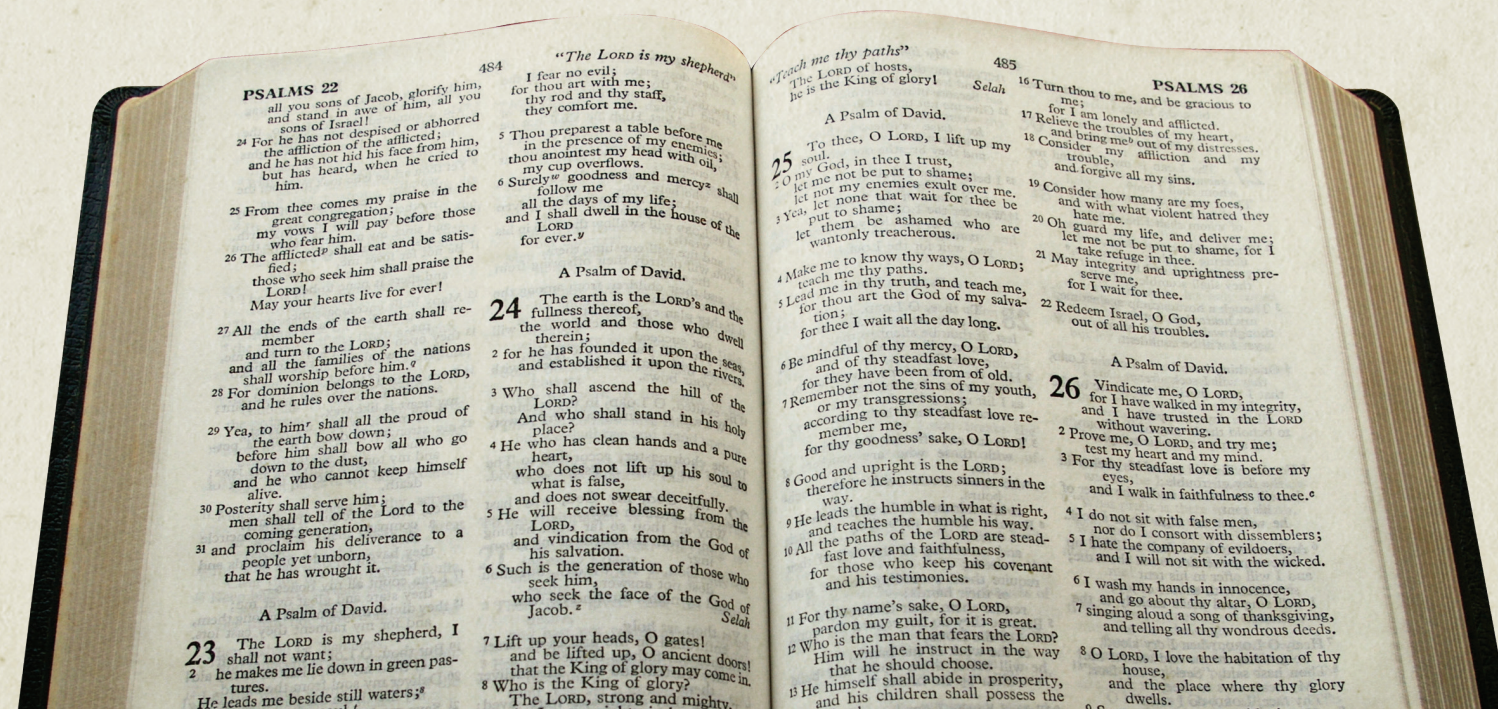 PSALMS 22
484
all you sons of Jacob, glorify him,
and stand in awe of him, all you
sons of Israel!
24 For he has not despised or abhorred
the affliction of the afflicted;
and he has not hid his face from him,
but has heard, when he cried to
him.
25 From thee comes my praise in the
great congregation;
my vows I will pay before those
who fear him.
26 The afflictedᵖ shall eat and be satis-
fied;
those who seek him shall praise the
LORD!
May your hearts live for ever!
27 All the ends of the earth shall re-
member
and turn to the LORD;
and all the families of the nations
shall worship before him.q
28 For dominion belongs to the LORD,
and he rules over the nations.
29 Yea, to himʳ shall all the proud of
the earth bow down;
before him shall bow all who go
down to the dust,
and he who cannot keep himself
alive.
30 Posterity shall serve him;
men shall tell of the Lord to the
coming generation,
31 and proclaim his deliverance to a
people yet unborn,
that he has wrought it.
A Psalm of David.
23 The LORD is my shepherd, I
shall not want;
2 he makes me lie down in green pas-
tures.
He leads me beside still waters;ˢ
"The LORD is my shepherd"
I fear no evil;
for thou art with me;
thy rod and thy staff,
they comfort me.
5 Thou preparest a table before me
in the presence of my enemies;
thou anointest my head with oil,
my cup overflows.
6 Surelyʷ goodness and mercyˣ shall
follow me
all the days of my life;
and I shall dwell in the house of the
LORD
for ever.ʸ
A Psalm of David.
24 The earth is the LORD's and the
fullness thereof,
the world and those who dwell
therein;
2 for he has founded it upon the seas,
and established it upon the rivers.
3 Who shall ascend the hill of the
LORD?
And who shall stand in his holy
place?
4 He who has clean hands and a pure
heart,
who does not lift up his soul to
what is false,
and does not swear deceitfully.
5 He will receive blessing from the
LORD,
and vindication from the God of
his salvation.
6 Such is the generation of those who
seek him,
who seek the face of the God of
Jacob.ᶻ
Selah
7 Lift up your heads, O gates!
and be lifted up, O ancient doors!
that the King of glory may come in.
8 Who is the King of glory?
The LORD, strong and mighty,
"Teach me thy paths"
485
PSALMS 26
The LORD of hosts,
he is the King of glory!
Selah
A Psalm of David.
25 To thee, O LORD, I lift up my
soul.
2 O my God, in thee I trust,
let me not be put to shame;
let not my enemies exult over me.
3 Yea, let none that wait for thee be
put to shame;
let them be ashamed who are
wantonly treacherous.
4 Make me to know thy ways, O LORD;
teach me thy paths.
5 Lead me in thy truth, and teach me,
for thou art the God of my salva-
tion;
for thee I wait all the day long.
6 Be mindful of thy mercy, O LORD,
and of thy steadfast love,
for they have been from of old.
7 Remember not the sins of my youth,
or my transgressions;
according to thy steadfast love re-
member me,
for thy goodness' sake, O LORD!
8 Good and upright is the LORD;
therefore he instructs sinners in the
way.
9 He leads the humble in what is right,
and teaches the humble his way.
10 All the paths of the LORD are stead-
fast love and faithfulness,
for those who keep his covenant
and his testimonies.
11 For thy name's sake, O LORD,
pardon my guilt, for it is great.
12 Who is the man that fears the LORD?
Him will he instruct in the way
that he should choose.
13 He himself shall abide in prosperity,
and his children shall possess the
16 Turn thou to me, and be gracious to
me;
for I am lonely and afflicted.
17 Relieve the troubles of my heart,
and bring meᵇ out of my distresses.
18 Consider my affliction and my
trouble,
and forgive all my sins.
19 Consider how many are my foes,
and with what violent hatred they
hate me.
20 Oh guard my life, and deliver me;
let me not be put to shame, for I
take refuge in thee.
21 May integrity and uprightness pre-
serve me,
for I wait for thee.
22 Redeem Israel, O God,
out of all his troubles.
A Psalm of David.
26 Vindicate me, O LORD,
for I have walked in my integrity,
and I have trusted in the LORD
without wavering.
2 Prove me, O LORD, and try me;
test my heart and my mind.
3 For thy steadfast love is before my
eyes,
and I walk in faithfulness to thee.ᶜ
4 I do not sit with false men,
nor do I consort with dissemblers;
5 I hate the company of evildoers,
and I will not sit with the wicked.
6 I wash my hands in innocence,
and go about thy altar, O LORD,
7 singing aloud a song of thanksgiving,
and telling all thy wondrous deeds.
8 O LORD, I love the habitation of thy
house,
and the place where thy glory
dwells.